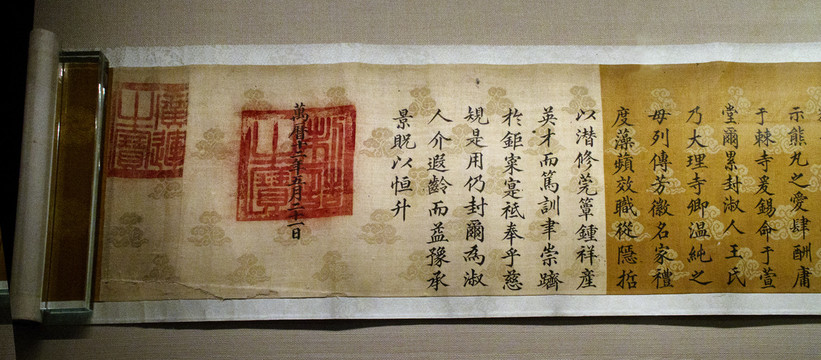 示熊丸之愛肆酬庸
于棘寺爰錫命于萱
堂爾累封淑人王氏
乃大理寺卿温純之
母列傳芳徽名家禮
度藻蘋效職從隱哲
以潛修莞簟鍾祥產
英才而篤訓聿崇躋
於鉅寀寔祗奉乎慈
規是用仍封爾為淑
人介遐齡而益豫承
景貺以恒升
萬曆廿一年五月二十一日
制誥之寶
之寶